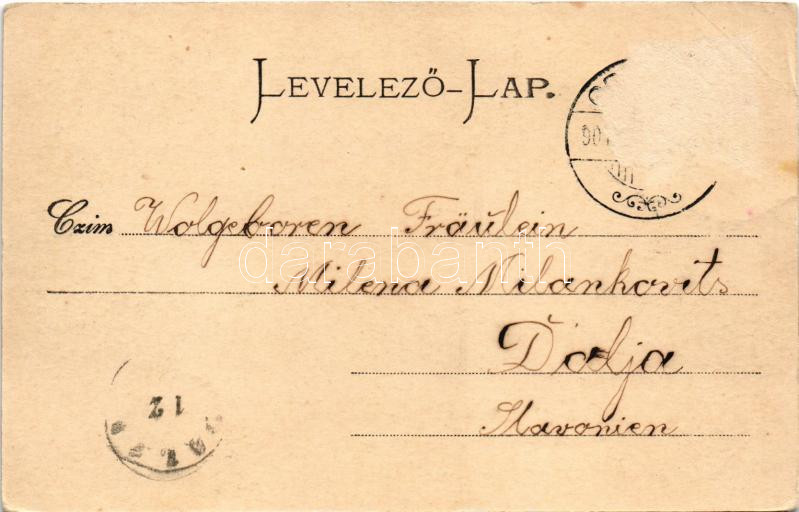 LEVELEZŐ-LAP.
901
Czim Wolgeboren Fräulein
Milena Milankovits
Dalja
Slavonien
12
darabanth